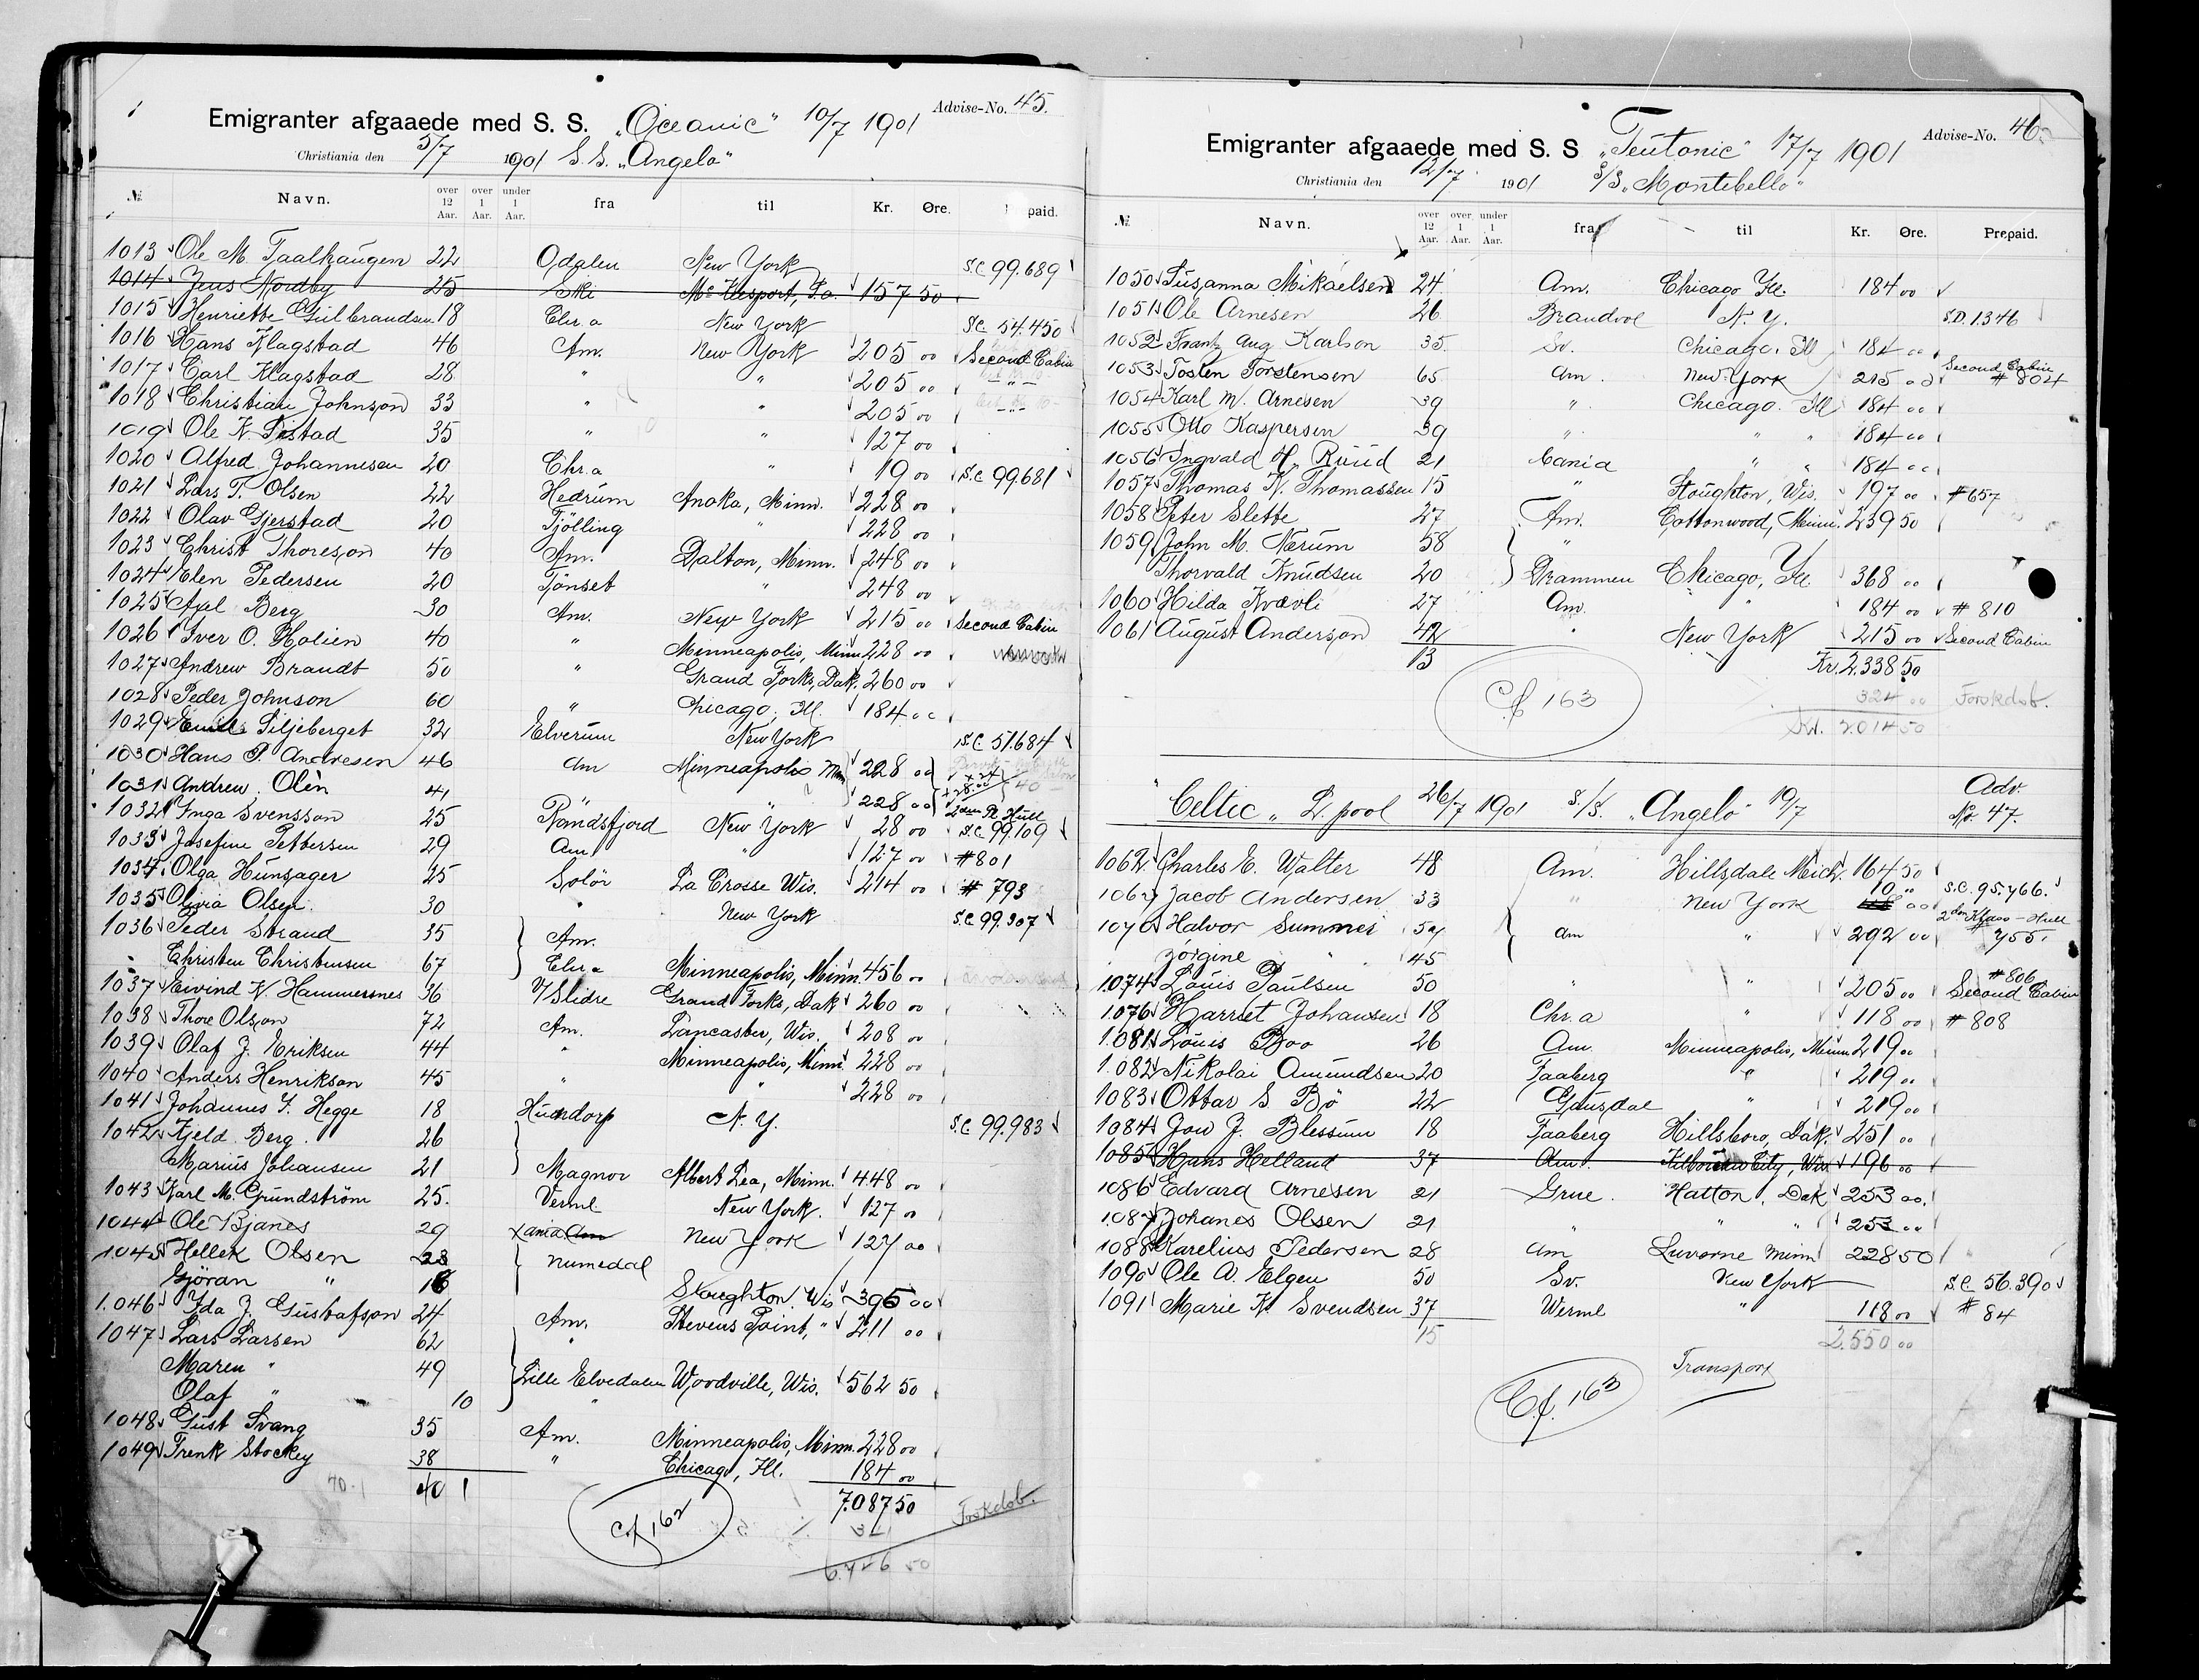 Emigranter afgaaede med S. S. „Oceanic" 10/7 1901 Advise-No. 45.
Christiania den 5/7 1901 S.S. „Angelo"
№ Navn. over 12 Aar. over 1 Aar. under 1 Aar. fra til Kr. Øre. paid.
1013 Ole M. Taalhaugen 22 Odalen New York S.C. 99.689
1014 Jens Nordby 25 Ski Mc Kesport, Pa. 157 50
1015 Henriette Gulbrandsen 18 Chr.a New York S.C. 54.450
1016 Hans Klagstad 46 Am. New York 205 00 Second Cabin
1017 Carl Klagstad 28 " " 205 00 — " —
1018 Christian Johnson 33 " " 205 00 — " —
1019 Ole K. Sistad 35 " " 127 00
1020 Alfred Johannesen 20 Chr.a " 19 00 S.C. 99.681
1021 Lars T. Olsen 22 Hedrum Anoka, Minn. 228 00
1022 Olav Gjerstad 20 Tjölling " 228 00
1023 Christ Thoreson 40 Am. Dalton, Minn. 248 00
1024 Elen Pedersen 20 Tönset " 248 00
1025 Axel Berg 30 Am. New York 215 00 Second Cabin
1026 Iver O. Holien 40 " Minneapolis, Minn. 228 00
1027 Andrew Brandt 50 " Grand Forks, Dak. 260 00
1028 Peder Johnson 60 " Chicago, Ill. 184 00
1029 Emil Siljeberget 32 Elverum New York S.C. 51.684
1030 Hans P. Andresen 46 Am Minneapolis Minn 228 00
1031 Andrew Olin 41 " " 228 00 2den Pl. Hull
1032 Inga Svensson 25 Randsfjord New York 28 00 S.C. 99.109
1033 Josefine Pettersen 29 Am. " 127 00 # 801
1034 Olga Hunsager 25 Solör La Crosse Wis. 214 00 # 793
1035 Olivia Olsen 30 " New York S.C. 99.307
1036 Peder Strand 35 Am.
Christen Christensen 67 Chr.a Minneapolis, Minn. 456 00
1037 Eivind K. Hammersnes 36 V/Slidre Grand Forks, Dak 260 00
1038 Thore Olson 72 Am. Lancaster, Wis. 208 00
1039 Olaf J. Eriksen 44 " Minneapolis, Minn. 228 00
1040 Anders Henrikson 45 " " 228 00
1041 Johannes S. Hegge 18 Hundorp N. Y. S.C. 99.983
1042 Kjeld Berg 26
Marius Johansen 21 Magnor Albert Lea, Minn. 448 00
1043 Karl M. Grundström 25. Verml. New York. 127 00
1044 Ole Bjanes 29 Xania Am New York 127 00
1045 Hellek Olsen 23 Numedal
Gjöran " 16 Stoughton Wis 395 00
1.046 Ida J. Gustafson 24 Am. Stevens Point, " 211 00
1047 Lars Larsen 62 "
Maren " 49 Lille Elvedalen Woodville, Wis. 562 50
Olaf " 10
1048 Gust Svang 35 Am. Minneapolis, Minn. 228 00
1049 Frenk Stockey 38 " Chicago, Ill. 184 00
70.1 40 1 7.087 50
Cf 162 Forskdob.
6.726 50
Emigranter afgaaede med S. S „Teutonic" 17/7 1901 Advise-No. 46
Christiania den 12/7 1901 S/S. „Montebello"
№ Navn. over 12 Aar. over 1 Aar. under 1 Aar. fra til Kr. Øre. Prepaid.
1050 Susanna Mikaelsen 24 Am. Chicago Ill. 184 00
1051 Ole Arnesen 26 Brandvol N. Y. S.D. 1.346
1052 Frantz Aug Karlson 35. Sv. Chicago. Ill 184 00
1053 Tosten Torstensen 65 Am. New York 215 00 Second Cabin # 804
1054 Karl M. Arnesen 39 " Chicago. Ill 184 00
1055 Otto Kaspersen 39 " " " 184 00
1056 Ingvald H. Ruud 21 Xania " " 184 00
1057 Thomas K. Thomassen 15 " Stoughton, Wis. 197 00 # 657
1058 Peter Slette 27 Am. Cottonwood, Minn. 239 50
1059 John M. Nærum 58 "
Thorvald Knudsen 20 Drammen Chicago, Ill 368 00
1060 Hilda Krævli 27 Am. " 184 00 # 810
1061 August Anderson 42 " New York 215 00 Second Cabin
13 Kr. 2.338 50
Cf 163 324 00 Forskdob.
Kr. 2.014 50
„Celtic" L.pool 26/7 1901 S/S. „Angelo" 19/7 Adv. No. 47.
1062 Charles E. Walter 48 Am. Hillsdale Mich. 164 50
1067 Jacob Andersen 33 " New York 10 " S.C. 95.766.
1070 Halvor Summei 54 Am " 292 00 2den Klass - Hull # 755
Jörgine " 45
1.074 Louis Paulsen 50 " " 205 00 # 806 Second Cabin
1.076 Harriet Johansen 18 Chr.a " 118 00 # 808
1.081 Louis Boo 26 Am Minneapolis, Minn 219 00
1.082 Nikolai Amundsen 20 Faaberg " 219 00
1083 Ottar S. Bö 22 Gausdal " 219 00
1084 Jon J. Blessum 18 Faaberg Hillsboro, Dak. 251 00
1085 Hans Helland 37 Am. Kilbourn City, Wis. 196 00
1086 Edvard Arnesen 21 Grue. Hatton, Dak 253 00.
1.087 Johanes Olsen 21 " " " 253 00
1088 Karelius Pedersen 28 Am Luvorne Minn 228 50
1090 Ole A. Elgen 50 Sv. New York S.C. 56.390
1091 Marie K. Svendsen 37 Werml " 118 00 # 84
15 2.550 00
Cf. 163 Transport